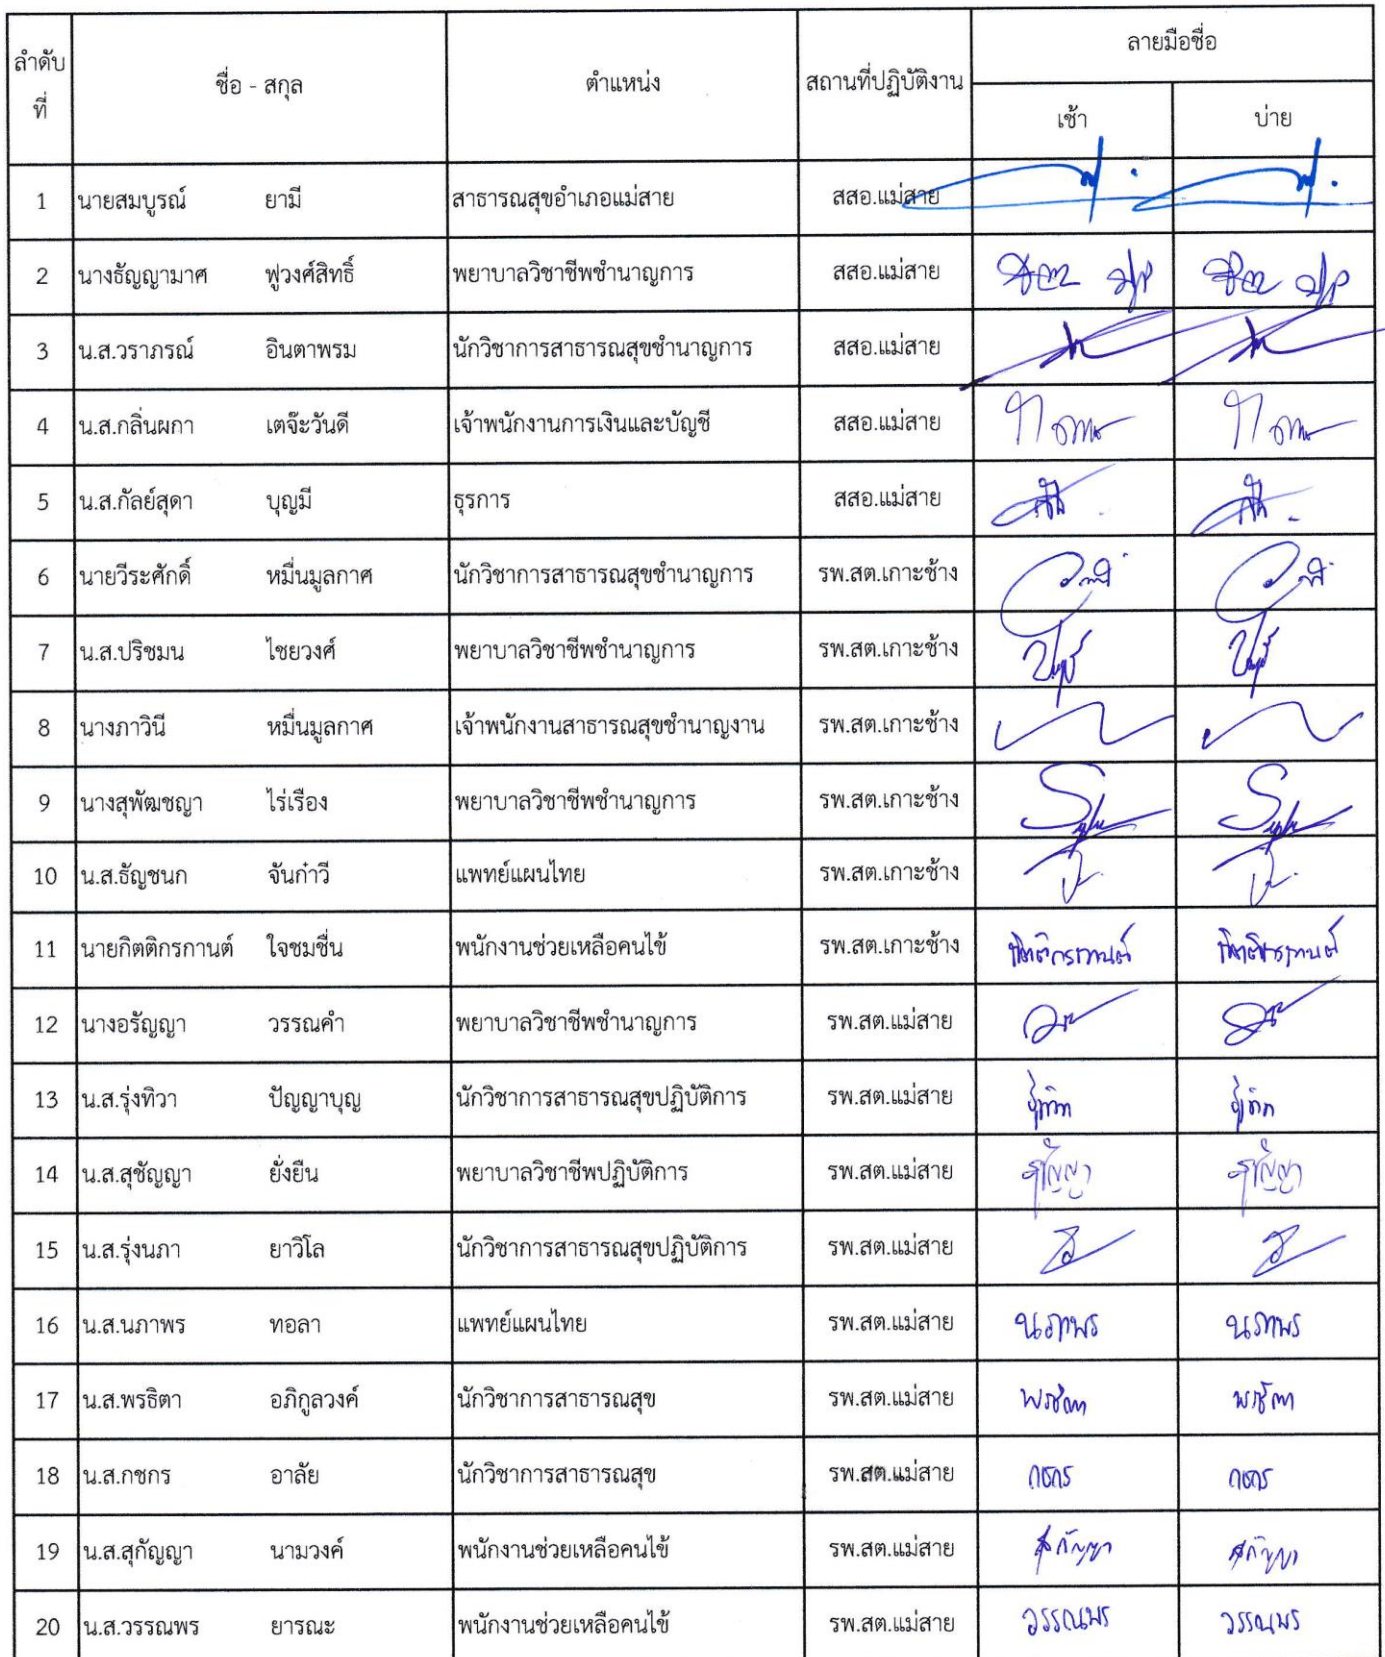 ลำดับที่ ชื่อ - สกุล ตำแหน่ง สถานที่ปฏิบัติงาน ลายมือชื่อ
เช้า บ่าย
1 นายสมบูรณ์ ยามี สาธารณสุขอำเภอแม่สาย สสอ.แม่สาย
2 นางธัญญามาศ ฟูวงศ์สิทธิ์ พยาบาลวิชาชีพชำนาญการ สสอ.แม่สาย
3 น.ส.วราภรณ์ อินตาพรม นักวิชาการสาธารณสุขชำนาญการ สสอ.แม่สาย
4 น.ส.กลิ่นผกา เตจ๊ะวันดี เจ้าพนักงานการเงินและบัญชี สสอ.แม่สาย
5 น.ส.กัลย์สุดา บุญมี ธุรการ สสอ.แม่สาย
6 นายวีระศักดิ์ หมื่นมูลกาศ นักวิชาการสาธารณสุขชำนาญการ รพ.สต.เกาะช้าง
7 น.ส.ปริชมน ไชยวงศ์ พยาบาลวิชาชีพชำนาญการ รพ.สต.เกาะช้าง
8 นางภาวินี หมื่นมูลกาศ เจ้าพนักงานสาธารณสุขชำนาญงาน รพ.สต.เกาะช้าง
9 นางสุพัฒชญา ไร่เรือง พยาบาลวิชาชีพชำนาญการ รพ.สต.เกาะช้าง
10 น.ส.ธัญชนก จันก๋าวี แพทย์แผนไทย รพ.สต.เกาะช้าง
11 นายกิตติกรกานต์ ใจชมชื่น พนักงานช่วยเหลือคนไข้ รพ.สต.เกาะช้าง กิตติกรกานต์ กิตติกรกานต์
12 นางอรัญญา วรรณคำ พยาบาลวิชาชีพชำนาญการ รพ.สต.แม่สาย
13 น.ส.รุ่งทิวา ปัญญาบุญ นักวิชาการสาธารณสุขปฏิบัติการ รพ.สต.แม่สาย
14 น.ส.สุชัญญา ยั่งยืน พยาบาลวิชาชีพปฏิบัติการ รพ.สต.แม่สาย
15 น.ส.รุ่งนภา ยาวิโล นักวิชาการสาธารณสุขปฏิบัติการ รพ.สต.แม่สาย
16 น.ส.นภาพร ทอลา แพทย์แผนไทย รพ.สต.แม่สาย นภาพร นภาพร
17 น.ส.พรธิตา อภิกูลวงค์ นักวิชาการสาธารณสุข รพ.สต.แม่สาย พรธิตา พรธิตา
18 น.ส.กชกร อาลัย นักวิชาการสาธารณสุข รพ.สต.แม่สาย กชกร กชกร
19 น.ส.สุกัญญา นามวงค์ พนักงานช่วยเหลือคนไข้ รพ.สต.แม่สาย สุกัญญา สุกัญญา
20 น.ส.วรรณพร ยารณะ พนักงานช่วยเหลือคนไข้ รพ.สต.แม่สาย วรรณพร วรรณพร